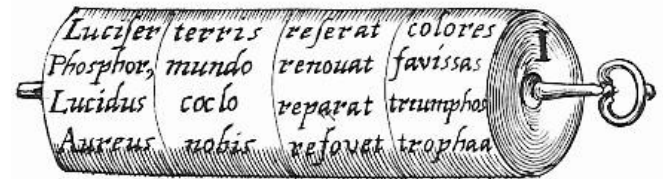 Lucifer terris reserat colores
Phosphor, mundo renouat favissas
Lucidus coclo reparat triumphos
Aureus nobis refovet trophaa
I